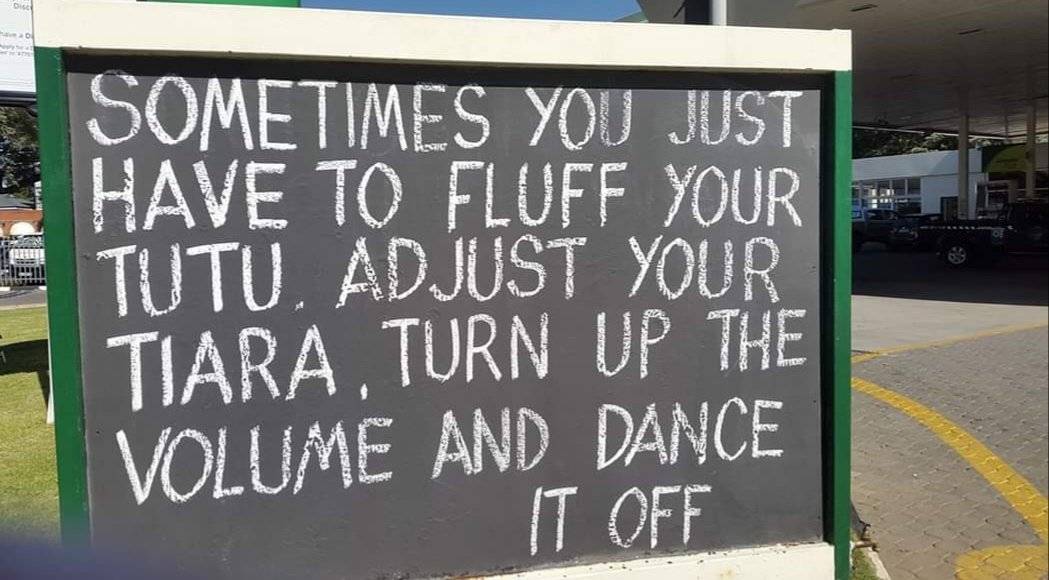 SOMETIMES YOU JUST
HAVE TO FLUFF YOUR
TUTU, ADJUST YOUR
TIARA, TURN UP THE
VOLUME AND DANCE
IT OFF